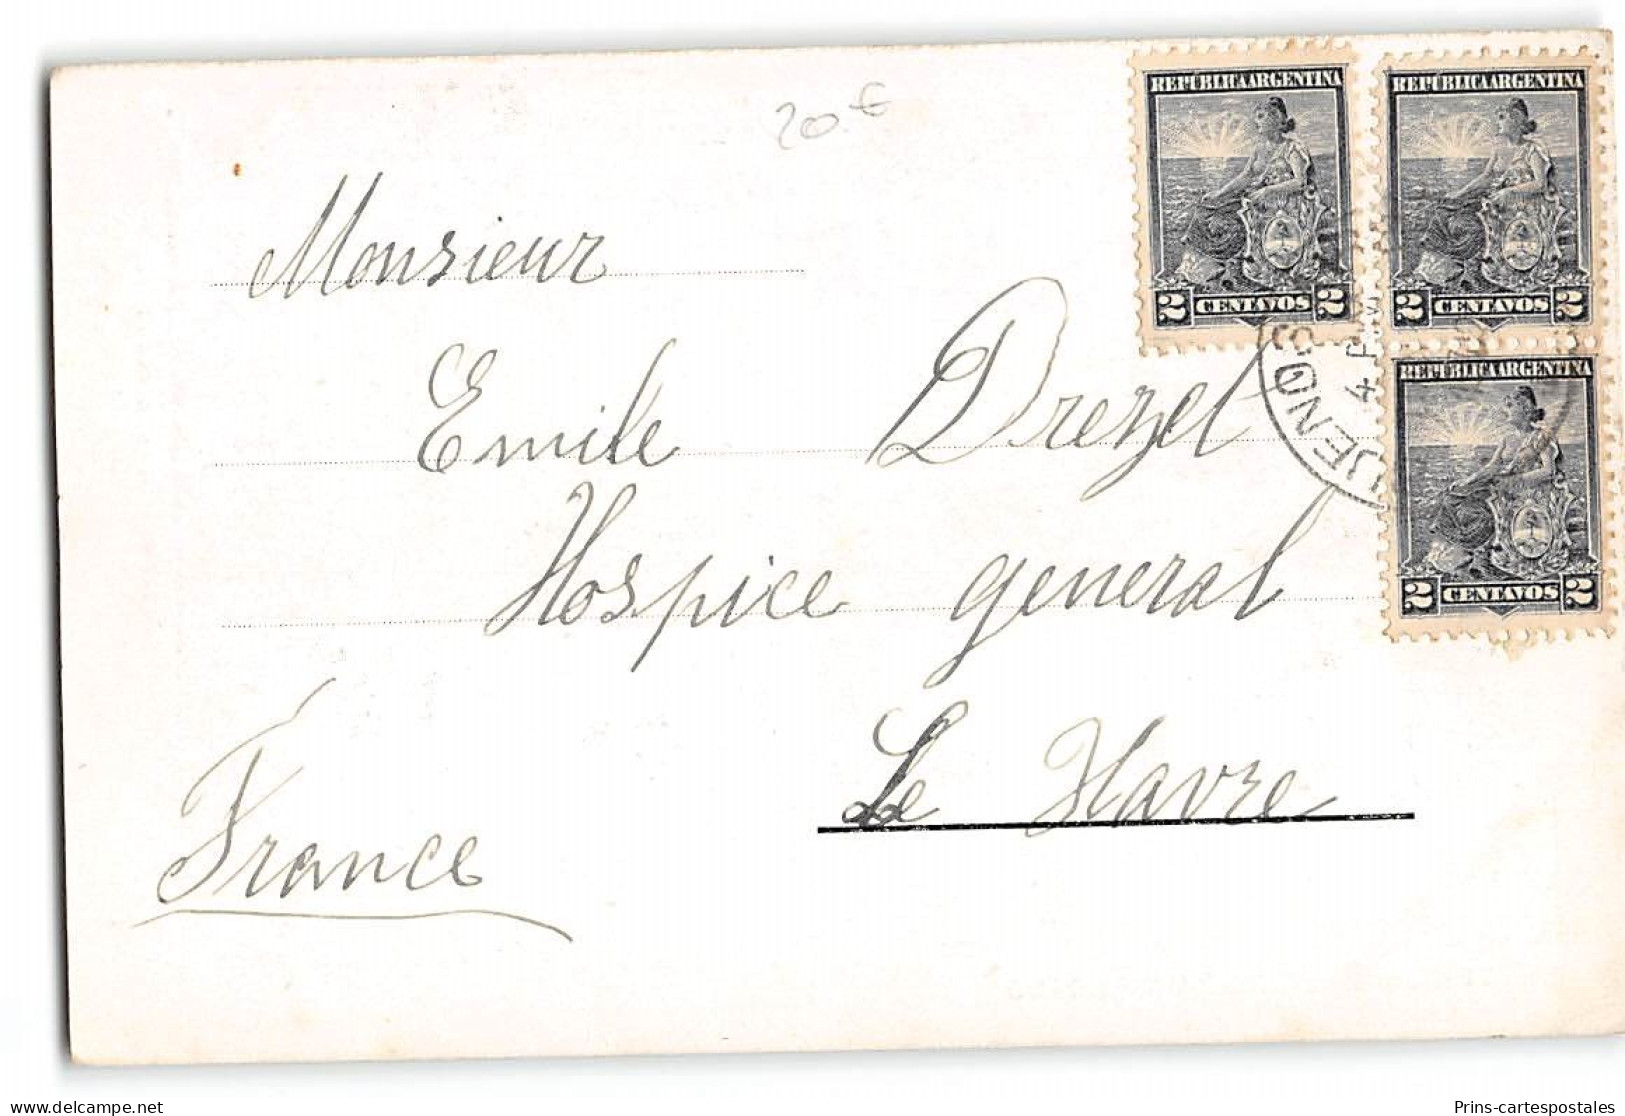 20 €
REPÚBLICA ARGENTINA
2 CENTAVOS 2
REPÚBLICA ARGENTINA
2 CENTAVOS 2
REPÚBLICA ARGENTINA
2 CENTAVOS 2
4 PM
Monsieur
Emile Drezel
Hospice general
Le Havre
France
delcampe.net
Prins-cartespostales